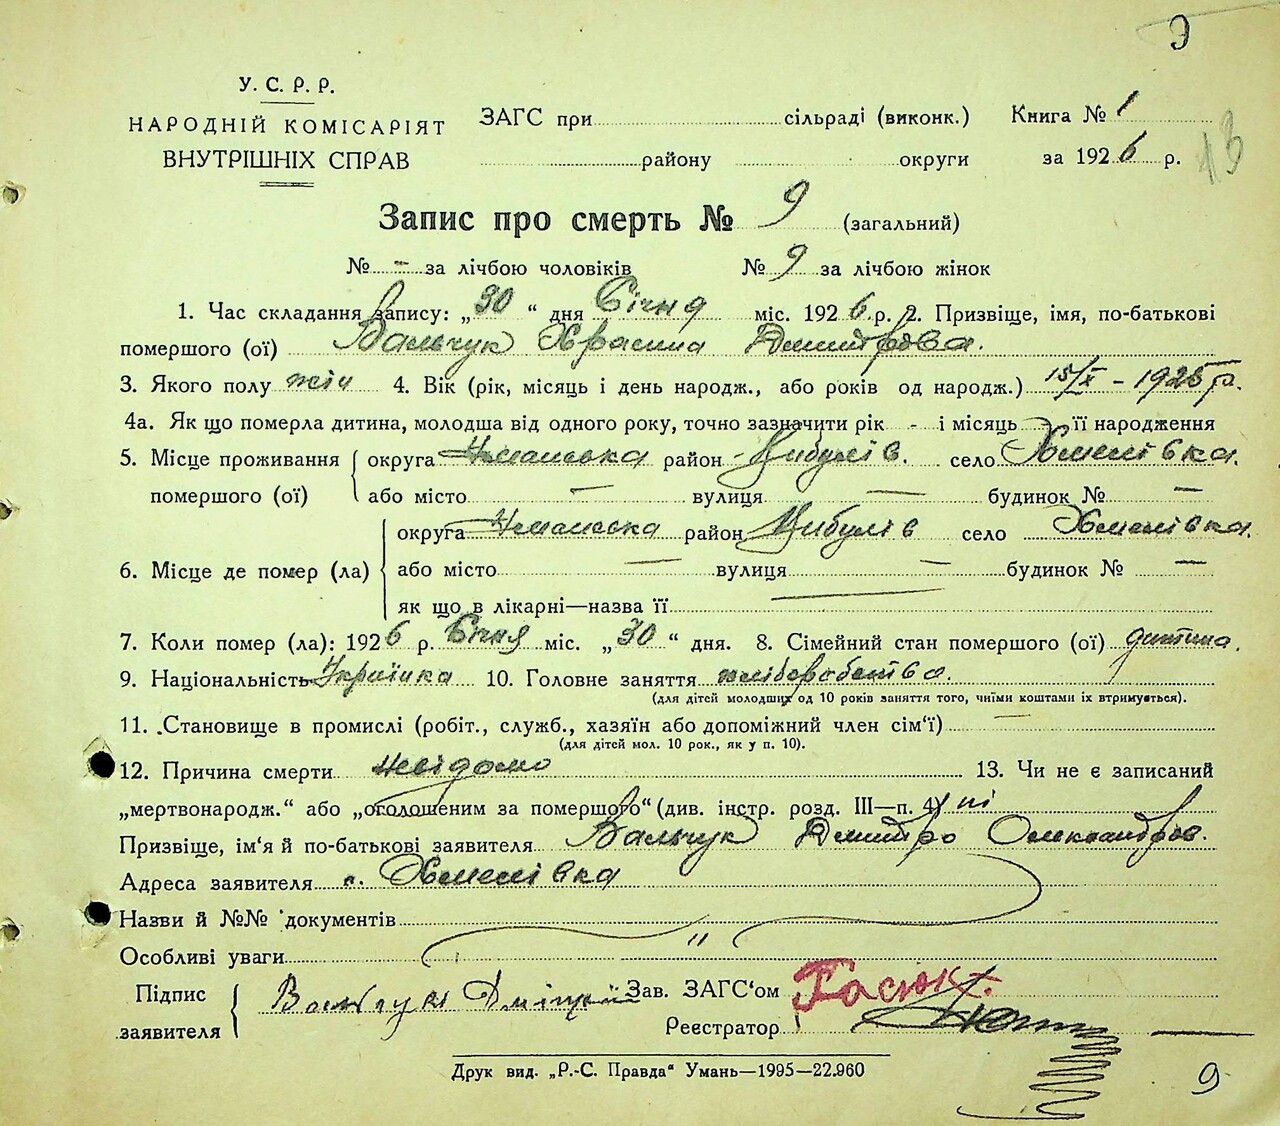 Э
У. С. Р. Р.
НАРОДНІЙ КОМІСАРІЯТ
ВНУТРІШНІХ СПРАВ
ЗАГС при сільраді (виконк.)
району округи
Книга № 1
за 1926 р.
13
Запис про смерть № 9 (загальний)
№ - за лічбою чоловіків № 9 за лічбою жінок
1. Час складання запису: „30" дня Січня міс. 1926 р. 2. Призвіще, імя, по-батькові
помершого (ої) Вальчук Храсина Дмитрова.
3. Якого полу жін 4. Вік (рік, місяць і день народж., або років од народж.) 15/X - 1925 р.
4а. Як що померла дитина, молодша від одного року, точно зазначити рік - і місяць її народження
5. Місце проживання округа Уманська район Цибулів. село Хмелівка.
помершого (ої) або місто — вулиця — будинок № —
округа Уманська район Цибулів село Хмелівка.
6. Місце де помер (ла) або місто — вулиця — будинок № —
як що в лікарні—назва її
7. Коли помер (ла): 1926 р. Січня міс. „30" дня. 8. Сімейний стан помершого (ої) дитина.
9. Національність Українка 10. Головне заняття хліборобство.
(для дітей молодших од 10 років заняття того, чиїми коштами їх втримується).
11. Становище в промислі (робіт., служб., хазяїн або допоміжний член сім'ї) —
(для дітей мол. 10 рок., як у п. 10).
12. Причина смерти невідомо 13. Чи не є записаний
„мертвонародж." або „оголошеним за помершого" (див. інстр. розд. III—п. 4) ні
Призвіще, ім'я й по-батькові заявителя Вальчук Дмитро Олександров.
Адреса заявителя с. Хмелівка
Назви й №№ документів
Особливі уваги "
Підпис
заявителя Вальчук Дмітрій
Зав. ЗАГС'ом
Реєстратор
Друк вид. „Р.-С. Правда" Умань—1995—22.960
9